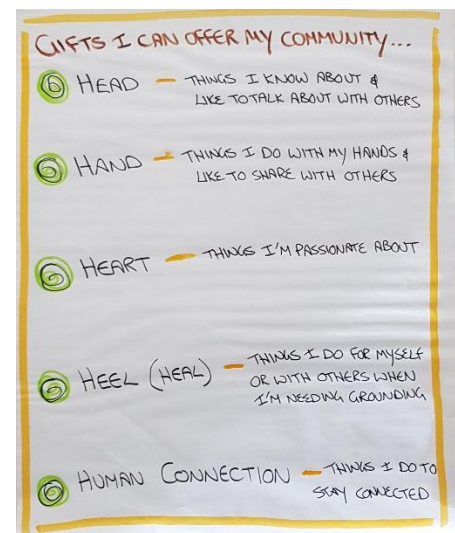 GIFTS I CAN OFFER MY COMMUNITY...
HEAD — THINGS I KNOW ABOUT &
LIKE TO TALK ABOUT WITH OTHERS
HAND — THINGS I DO WITH MY HANDS &
LIKE TO SHARE WITH OTHERS
HEART — THINGS I'M PASSIONATE ABOUT
HEEL (HEAL) — THINGS I DO FOR MYSELF
OR WITH OTHERS WHEN
I'M NEEDING GROUNDING
HUMAN CONNECTION — THINGS I DO TO
STAY CONNECTED